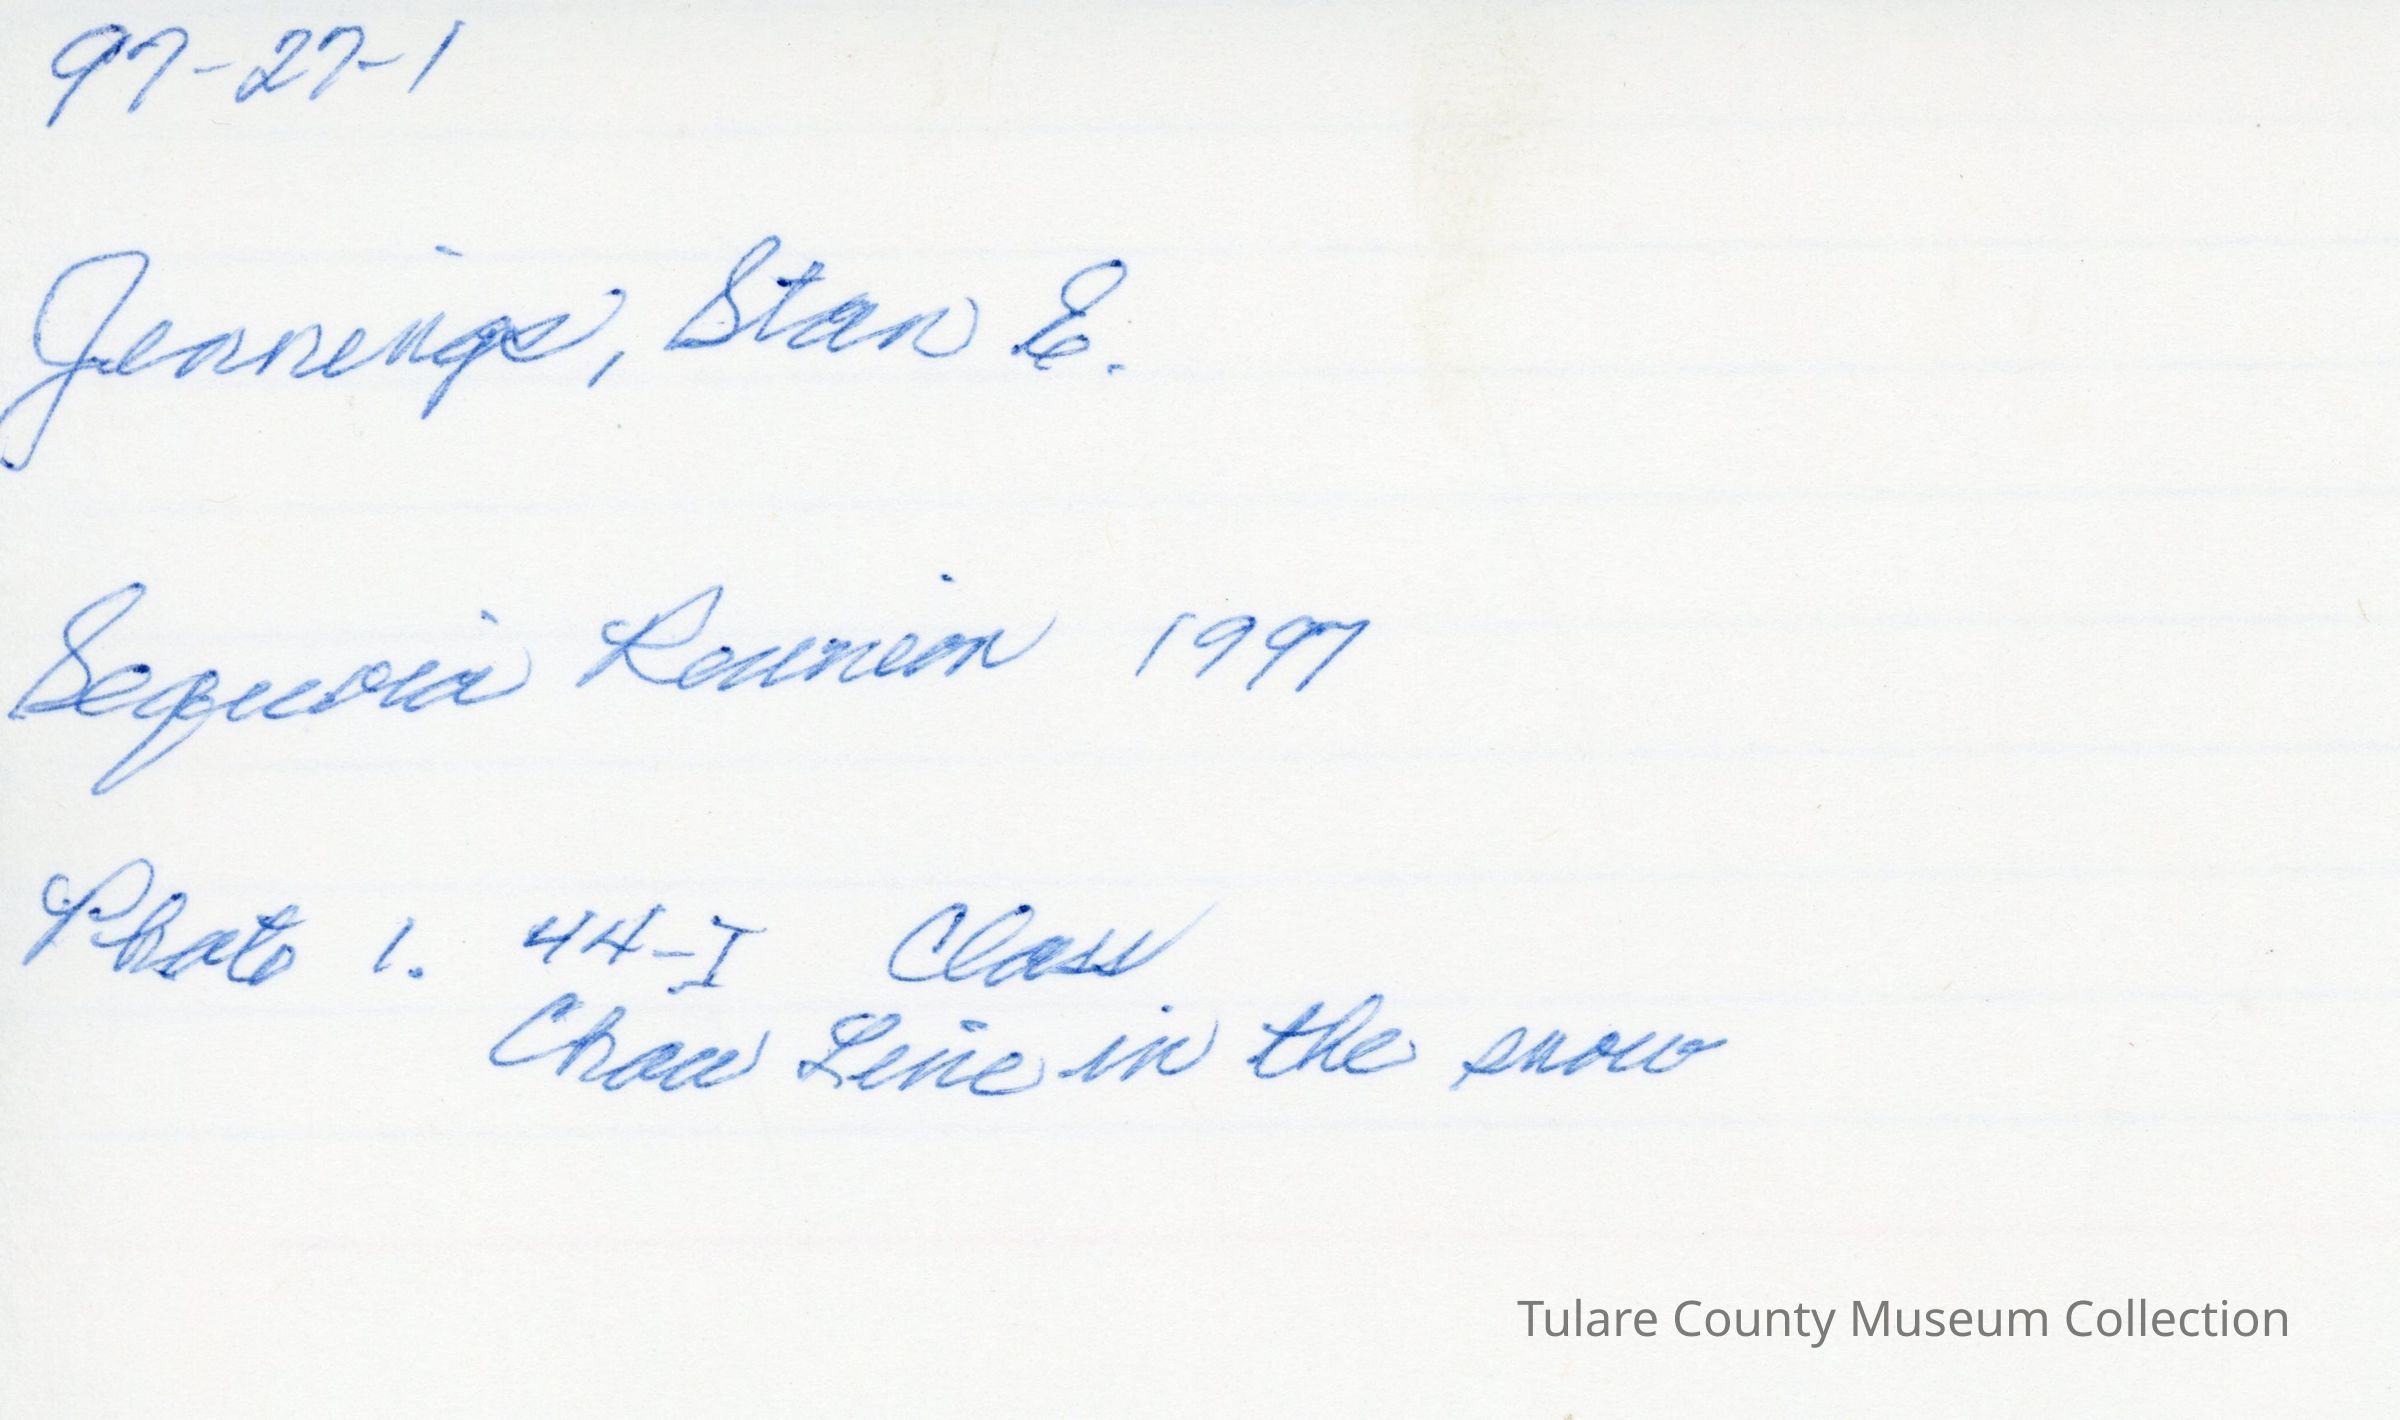 97-27-1
Jennings, Stan E.
Sequoia Reunion 1997
Photo 1. 44-I Class
Chow Line in the snow
Tulare County Museum Collection